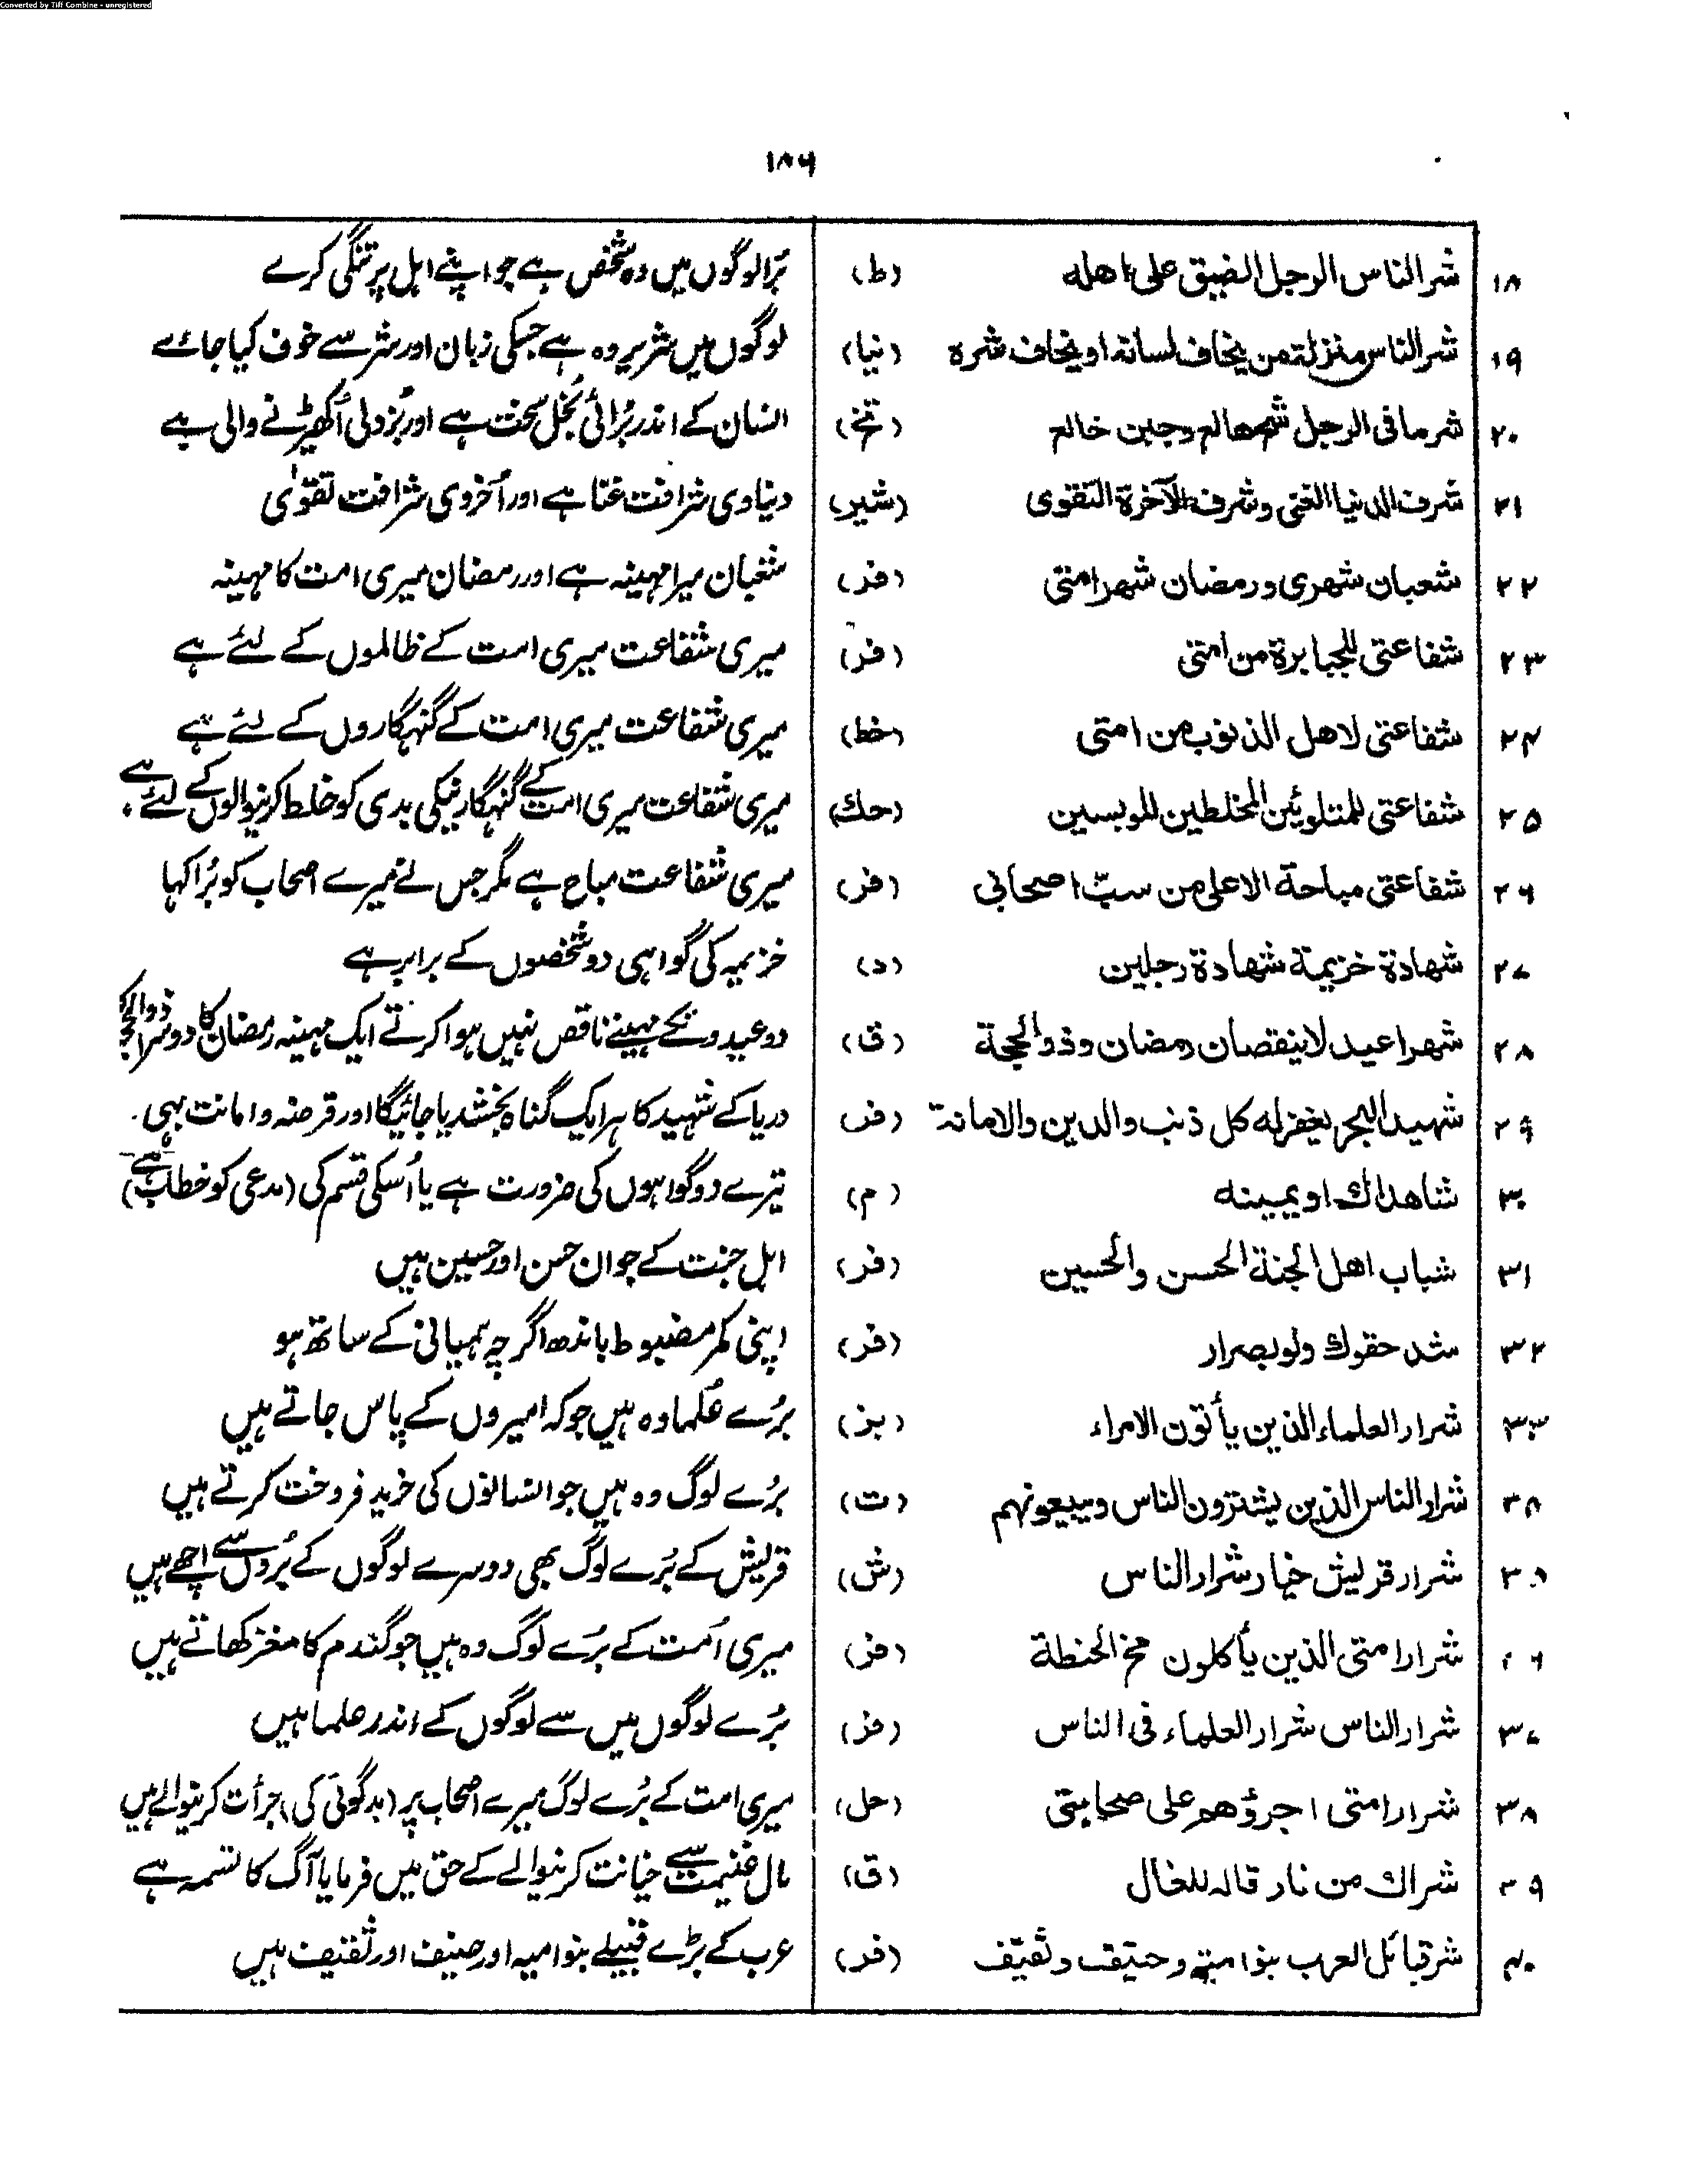 Converted by Tiff Combine - unregistered
۱۸۶
۱۸ شر الناس الرجل الضیق علی اهله (ط) بُرا لوگوں میں وہ شخص ہے جو اپنے اہل پر تنگی کرے
۱۹ شر الناس منزلة من یخاف لسانه او یخاف شره (نیا) لوگوں میں شریر وہ ہے جسکی زبان اور شر سے خوف کیا جائے
۲۰ شر ما فی الرجل شح هالع وجبن خالع (تخ) انسان کے اندر بُرائی بُخل سخت ہے اور بُزدلی اُکھیڑنے والی ہے
۲۱ شرف الدنیا الغنی وشرف الآخرة التقوی (شیر) دنیاوی شرافت غنا ہے اور اُخروی شرافت تقویٰ
۲۲ شعبان شهری ورمضان شهر امتی (فر) شعبان میرا مہینہ ہے اور رمضان میری امت کا مہینہ
۲۳ شفاعتی للجبابرة من امتی (فر) میری شفاعت میری امت کے ظالموں کے لئے ہے
۲۴ شفاعتی لاهل الذنوب من امتی (خط) میری شفاعت میری امت کے گنہگاروں کے لئے ہے
۲۵ شفاعتی للمتلوئین المخلطین للوبسین (حك) میری شفاعت میری امت کے گنہگار نیکی بدی کو خلط کرنیوالوں کے لئے ہے
۲۶ شفاعتی مباحة الا علی من سبّ اصحابی (فر) میری شفاعت مباح ہے مگر جس نے میرے اصحاب کو بُرا کہا
۲۷ شهادة خزیمة شهادة رجلین (د) خزیمہ کی گواہی دو شخصوں کے برابر ہے
۲۸ شهرا عید لا ینقصان رمضان وذو الحجة (ق) دو عیدونکے مہینے ناقص نہیں ہوا کرتے ایک مہینہ رمضان کا دوسرا ذوالحجہ
۲۹ شهید البحر یغفر له کل ذنب والدین والامانة (فر) دریا کے شہید کا ہر ایک گناہ بخشدیا جائیگا اور قرضہ و امانت بھی۔
۳۰ شاهداك او یمینه (م) تیرے دو گواہوں کی ضرورت ہے یا اُسکی قسم کی (مدعی کو خطاب ہے)
۳۱ شباب اهل الجنة الحسن والحسین (فر) اہل جنت کے جوان حسن اور حسین ہیں
۳۲ شد حقوك ولو بصرار (فر) اپنی کمر مضبوط باندھ اگرچہ ہمیانی کے ساتھ ہو
۳۳ شرار العلماء الذین یأتون الامراء (بز) بُرے عُلما وہ ہیں جو کہ امیروں کے پاس جاتے ہیں
۳۸ شرار الناس الذین یشترون الناس ویبیعونهم (ت) بُرے لوگ وہ ہیں جو انسانوں کی خرید فروخت کرتے ہیں
۳۵ شرار قریش خیار شرار الناس (ش) قریش کے بُرے لوگ بھی دوسرے لوگوں کے بُروں سے اچھے ہیں
۳۶ شرار امتی الذین یأکلون مخ الحنطة (فر) میری اُمت کے بُرے لوگ وہ ہیں جو گندم کا مغز کھاتے ہیں
۳۷ شرار الناس شرار العلماء فی الناس (فر) بُرے لوگوں میں سے لوگوں کے اندر علما ہیں
۳۸ شرار امتی اجرؤهم علی صحابتی (حل) میری امت کے بُرے لوگ میرے اصحاب پر (بدگوئی کی) جرأت کرنیوالے ہیں
۳۹ شراك من نار قاله للغال (ق) مال غنیمت سے خیانت کرنیوالے کے حق میں فرمایا آگ کا تسمہ ہے
۴۰ شر قبائل العرب بنو امیة وحنیفة وثقیف (فر) عرب کے بڑے قبیلے بنو امیہ اور حنیف اور ثقیف ہیں